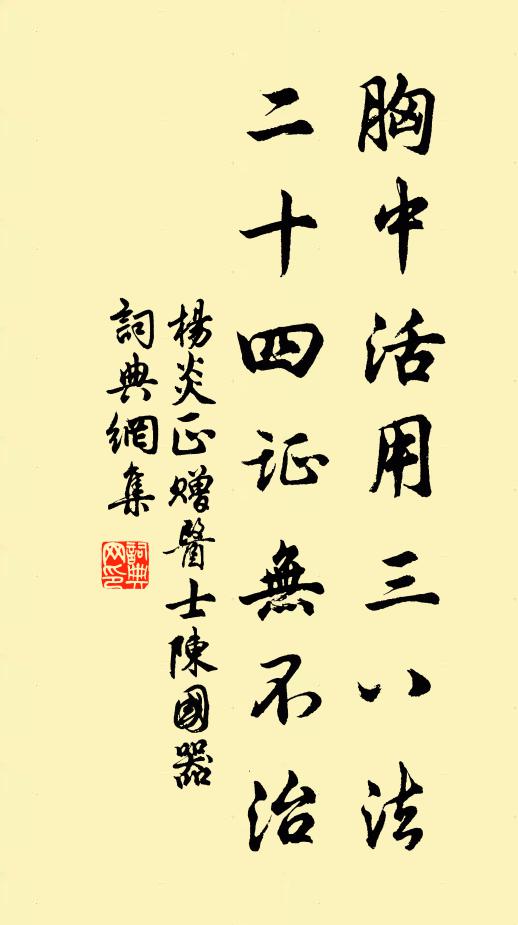 胸中活用三八法
二十四证無不治
楊炎正贈醫士陳國器
詞典網集
詞典
网印